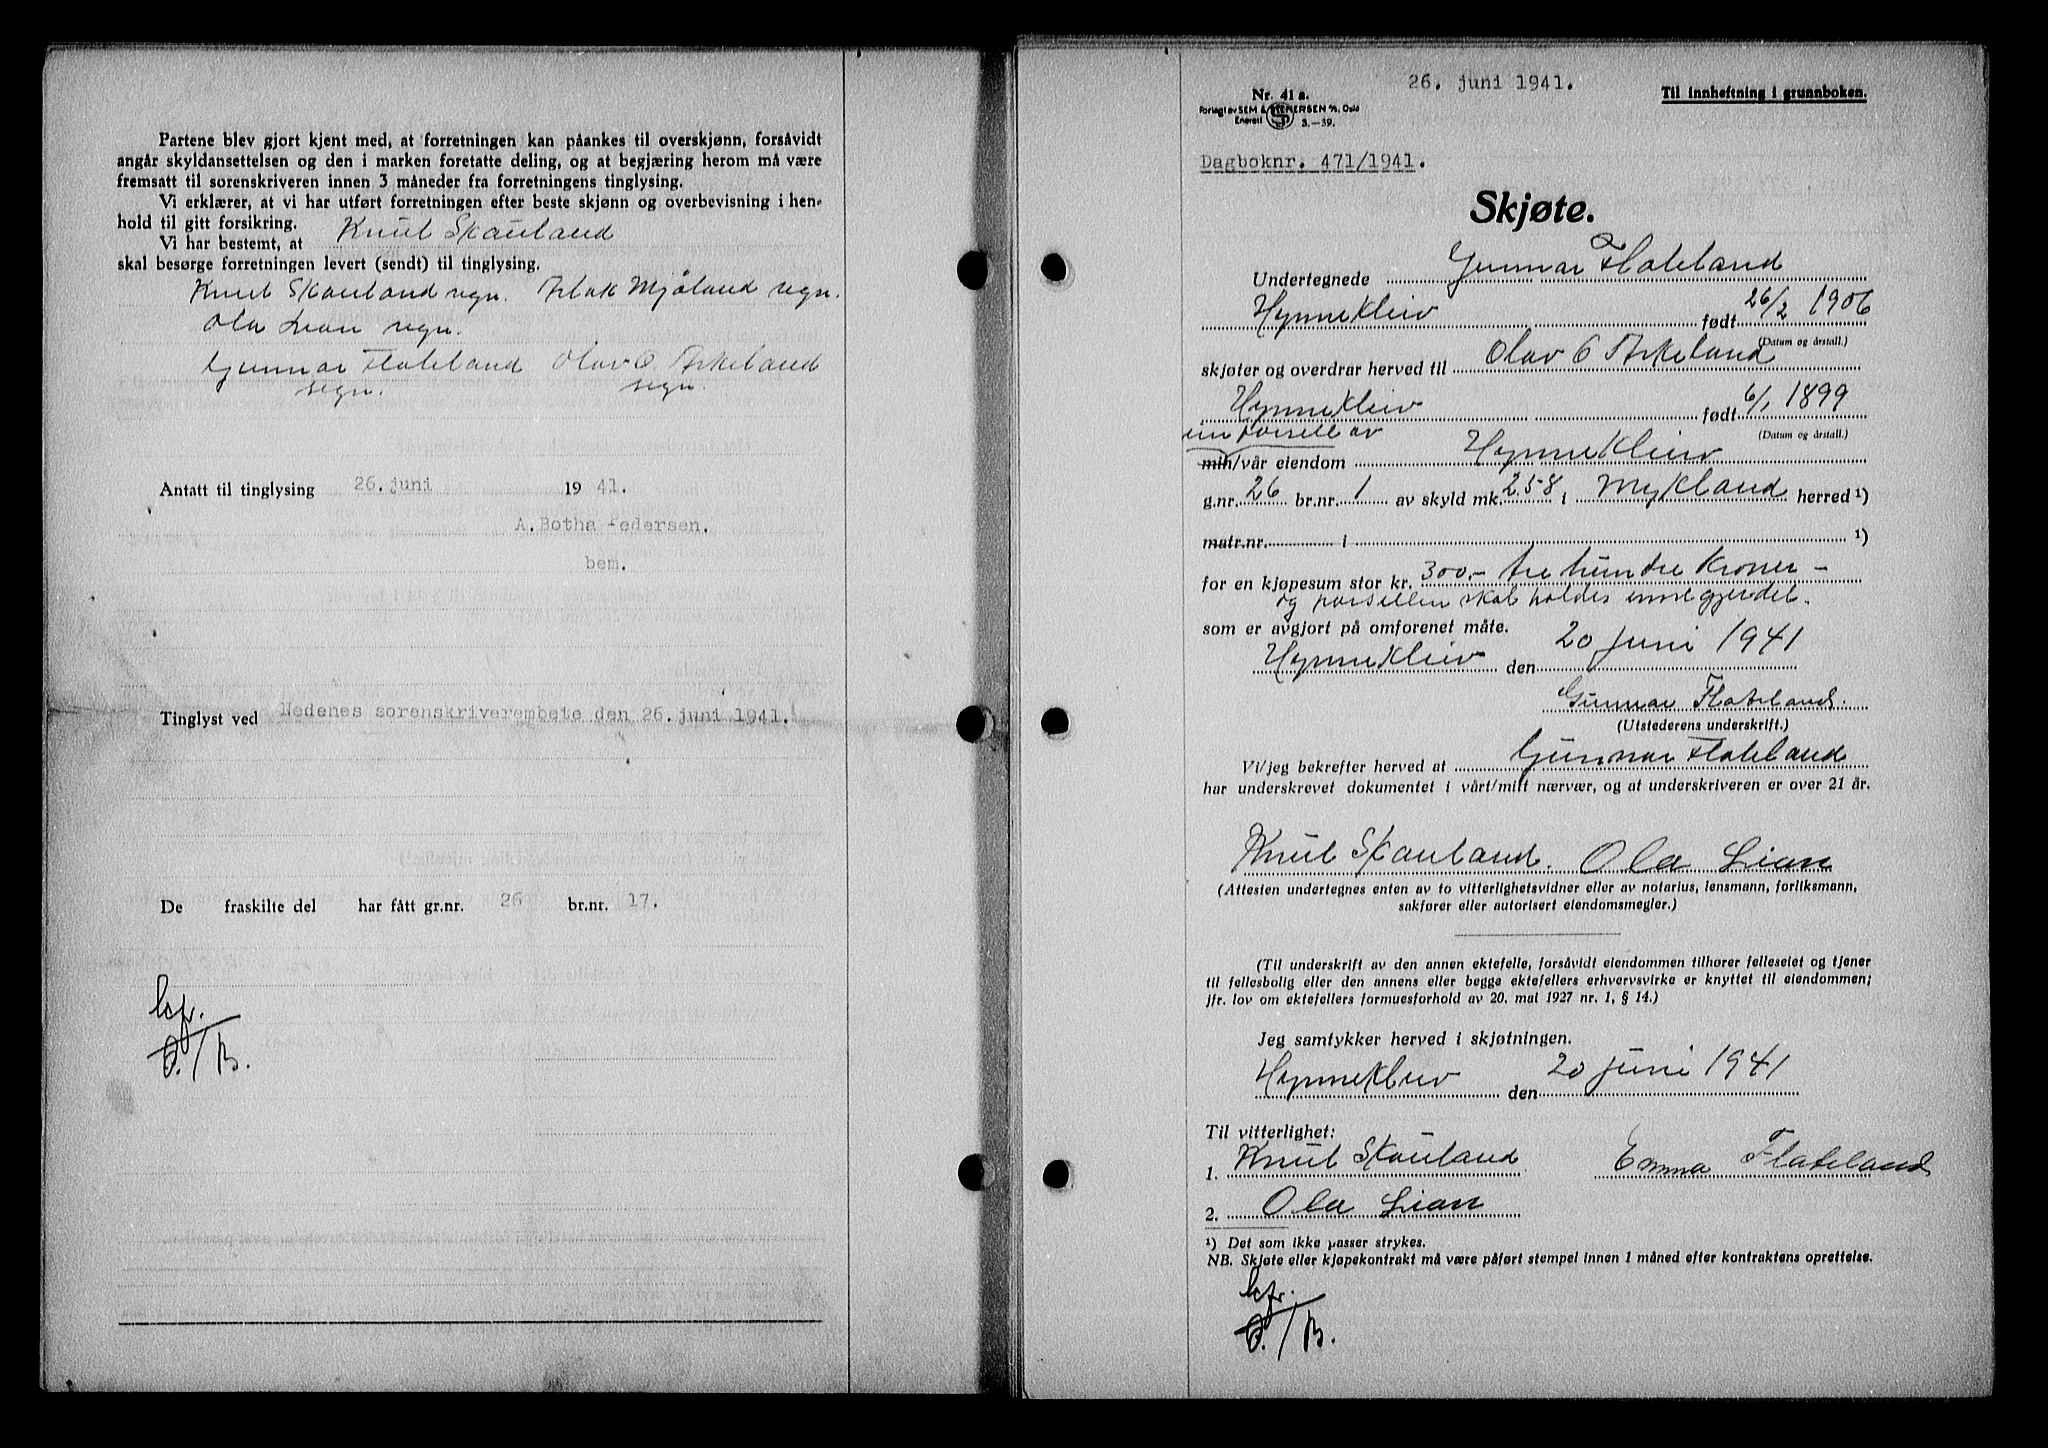 Partene blev gjort kjent med, at forretningen kan påankes til overskjønn, forsåvidt
angår skyldansettelsen og den i marken foretatte deling, og at begjæring herom må være
fremsatt til sorenskriveren innen 3 måneder fra forretningens tinglysing.
Vi erklærer, at vi har utført forretningen efter beste skjønn og overbevisning i hen-
hold til gitt forsikring.
Vi har bestemt, at Knut Skauland
skal besørge forretningen levert (sendt) til tinglysing.
Knut Skauland sign. Aslak Mjåland sign.
Ola Lian sign.
Gunnar Flateland Olav O Askeland
sign. sign.
Antatt til tinglysing 26. juni 19 41.
A. Botha Pedersen.
bem.
Tinglyst ved Nedenes sorenskriverembete den 26. juni 1941.
De fraskilte del har fått gr.nr. 26 br.nr. 17.
26. juni 1941.
Nr. 41 a.
Til innheftning i grunnboken.
Forlagt av SEM & STENERSEN A/S, Oslo
Enerett 3.—39.
Dagboknr. 471/1941.
Skjøte.
Undertegnede Gunnar Flateland
Hynnekleiv født 26/2 1906
(Datum og årstall.)
skjøter og overdrar herved til Olav O Askeland
Hynnekleiv født 6/1 1899
(Datum og årstall.)
en parsell av
min/vår eiendom Hynnekleiv
g.nr. 26 br.nr. 1 av skyld mk. 258 i Mykland herred ¹)
matr.nr. i ¹)
for en kjøpesum stor kr. 300.- tre hundre kroner -
og parsellen skal holdes innegjerdet.
som er avgjort på omforenet måte.
Hynnekleiv den 20 juni 1941
Gunnar Flateland.
(Utstederens underskrift.)
Vi/jeg bekrefter herved at Gunnar Flateland
har underskrevet dokumentet i vårt/mitt nærvær, og at underskriveren er over 21 år.
Knut Skauland. Ola Lian
(Attesten undertegnes enten av to vitterlighetsvidner eller av notarius, lensmann, forliksmann,
sakfører eller autorisert eiendomsmegler.)
(Til underskrift av den annen ektefelle, forsåvidt eiendommen tilhører felleseiet og tjener
til fellesbolig eller den annens eller begge ektefellers erhvervsvirke er knyttet til eiendommen;
jfr. lov om ektefellers formuesforhold av 20. mai 1927 nr. 1, § 14.)
Jeg samtykker herved i skjøtningen.
Hynnekleiv den 20 juni 1941
Til vitterlighet:
1. Knut Skauland Emma Flateland
2. Ola Lian
¹) Det som ikke passer strykes.
NB. Skjøte eller kjøpekontrakt må være påført stempel innen 1 måned efter kontraktens oprettelse.